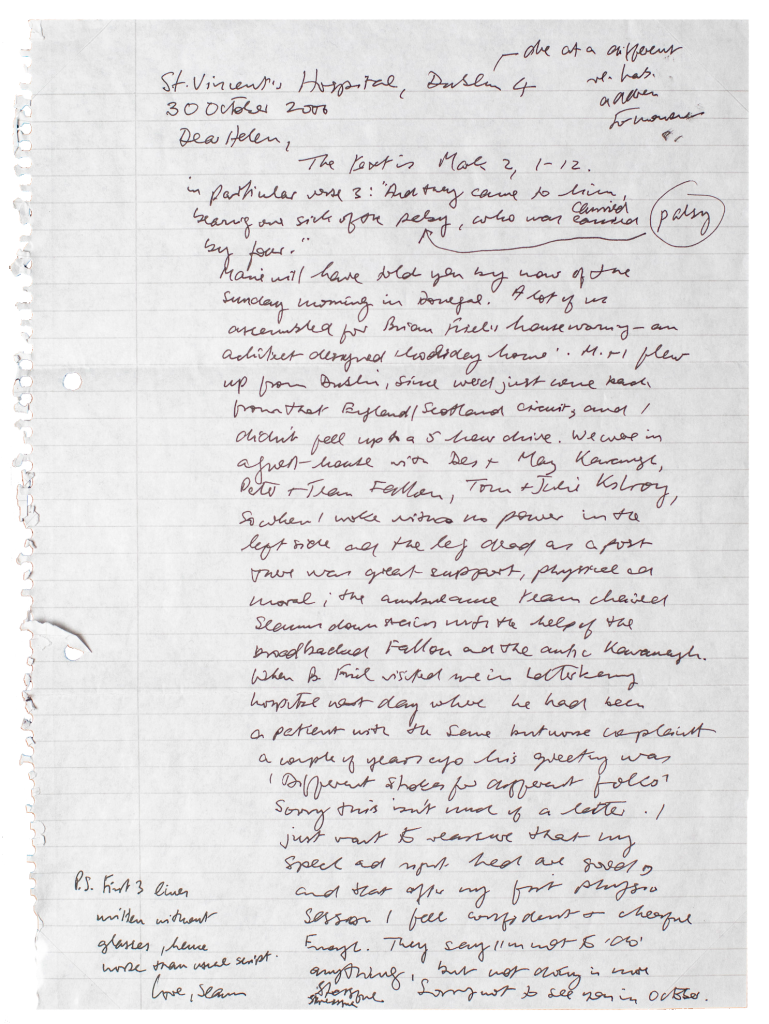 St. Vincent's Hospital, Dublin 4
30 October 2000
be at a different
address
Dear Helen,
The text is Mark 2, 1-12.
in particular verse 3: "And they came to him,
bearing one sick of the palsy, who was carried
by four."
palsy
Marie will have told you by now of the
Sunday morning in Donegal. A lot of us
assembled for Brian Friel's housewarming — an
architect designed 'holiday home'. M. + I flew
up from Dublin, since we'd just come back
from that England/Scotland circuit, and I
didn't feel up to a 5 hour drive. We were in
a guest-house with Des + Mary Kavanagh,
Peter + Jean Fallon, Tom + Julie Kilroy,
So when I woke with no power in the
left side and the leg dead as a post
there was great support, physical and
moral; the ambulance team chaired
Seamus downstairs with the help of the
broadbacked Fallon and the antic Kavanagh.
When B. Friel visited me in Letterkenny
hospital next day where he had been
a patient with the same but worse complaint
a couple of years ago his greeting was
'Different strokes for different folks'
Sorry this isn't much of a letter. I
just want to reassure that my
speech and right hand are good,
and that after my first physio
session I feel confident + cheerful
Enough. They say I'm not to 'do'
anything, but not doing is more
stressful Sorry not to see you in October.
P.S. First 3 lines
written without
glasses, hence
worse than usual script.
Love, Seamus